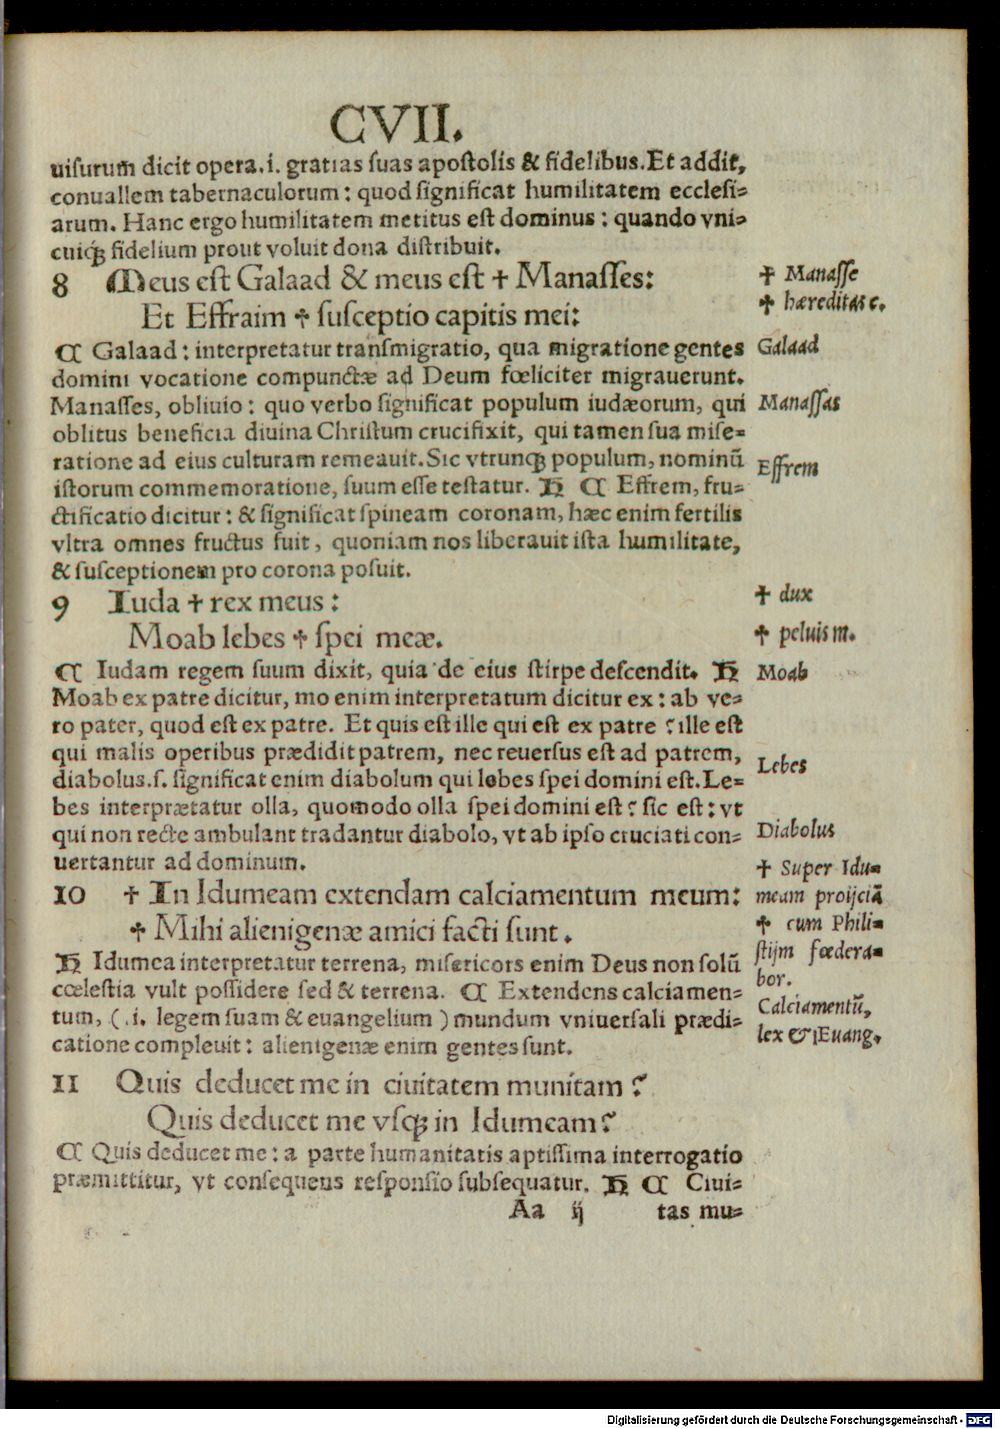 CVII.
uisurum̃ dicit opera.i. gratias suas apostolis & fidelibus.Et addit,
conuallem tabernaculorum: quod significat humilitatem ecclesi=
arum. Hanc ergo humilitatem metitus est dominus: quando vni=
cuiqꝫ fidelium prout voluit dona distribuit.
8 Meus est Galaad & meus est ✝ Manasses:
✝ Manasse
Et Effraim ✝ susceptio capitis mei:
✝ hæreditas c.
₵ Galaad: interpretatur transmigratio, qua migratione gentes
Galaad
domini vocatione compunctæ ad Deum fœliciter migrauerunt.
Manasses, obliuio: quo verbo significat populum iudæorum, qui
Manassas
oblitus beneficia diuina Christum crucifixit, qui tamen sua mise=
ratione ad eius culturam remeauit. Sic vtrunqꝫ populum, nominũ
Effrem
istorum commemoratione, suum esse testatur. H ₵ Effrem, fru=
ctificatio dicitur: & significat spineam coronam, hæc enim fertilis
vltra omnes fructus fuit, quoniam nos liberauit ista humilitate,
& susceptionem pro corona posuit.
9 Iuda ✝ rex meus:
✝ dux
Moab lebes ✝ spei meæ.
✝ peluis m.
₵ Iudam regem suum dixit, quia de eius stirpe descendit. H
Moab
Moab ex patre dicitur, mo enim interpretatum dicitur ex: ab ve=
ro pater, quod est ex patre. Et quis est ille qui est ex patre ? ille est
qui malis operibus prædidit patrem, nec reuersus est ad patrem,
diabolus.s. significat enim diabolum qui lebes spei domini est. Le=
Lebes
bes interprætatur olla, quomodo olla spei domini est? sic est: vt
qui non recte ambulant tradantur diabolo, vt ab ipso cruciati con=
Diabolus
uertantur ad dominum.
10 ✝ In Idumeam extendam calciamentum meum:
✝ Super Idu=
meam proijciã
✝ Mihi alienigenæ amici facti sunt.
✝ cum Phili=
stijm fœdera=
bor.
H Idumea interpretatur terrena, misericors enim Deus non solũ
cœlestia vult possidere sed & terrena. ₵ Extendens calciamen=
Calciamentũ,
tum, (.i. legem suam & euangelium) mundum vniuersali prædi=
lex & Euang.
catione compleuit: alienigenæ enim gentes sunt.
11 Quis deducet me in ciuitatem munitam ?
Quis deducet me vsqꝫ in Idumeam?
₵ Quis deducet me: a parte humanitatis aptissima interrogatio
præmittitur, vt consequens responsio subsequatur. H ₵ Ciui=
Aa ij tas mu=
Digitalisierung gefördert durch die Deutsche Forschungsgemeinschaft - DFG